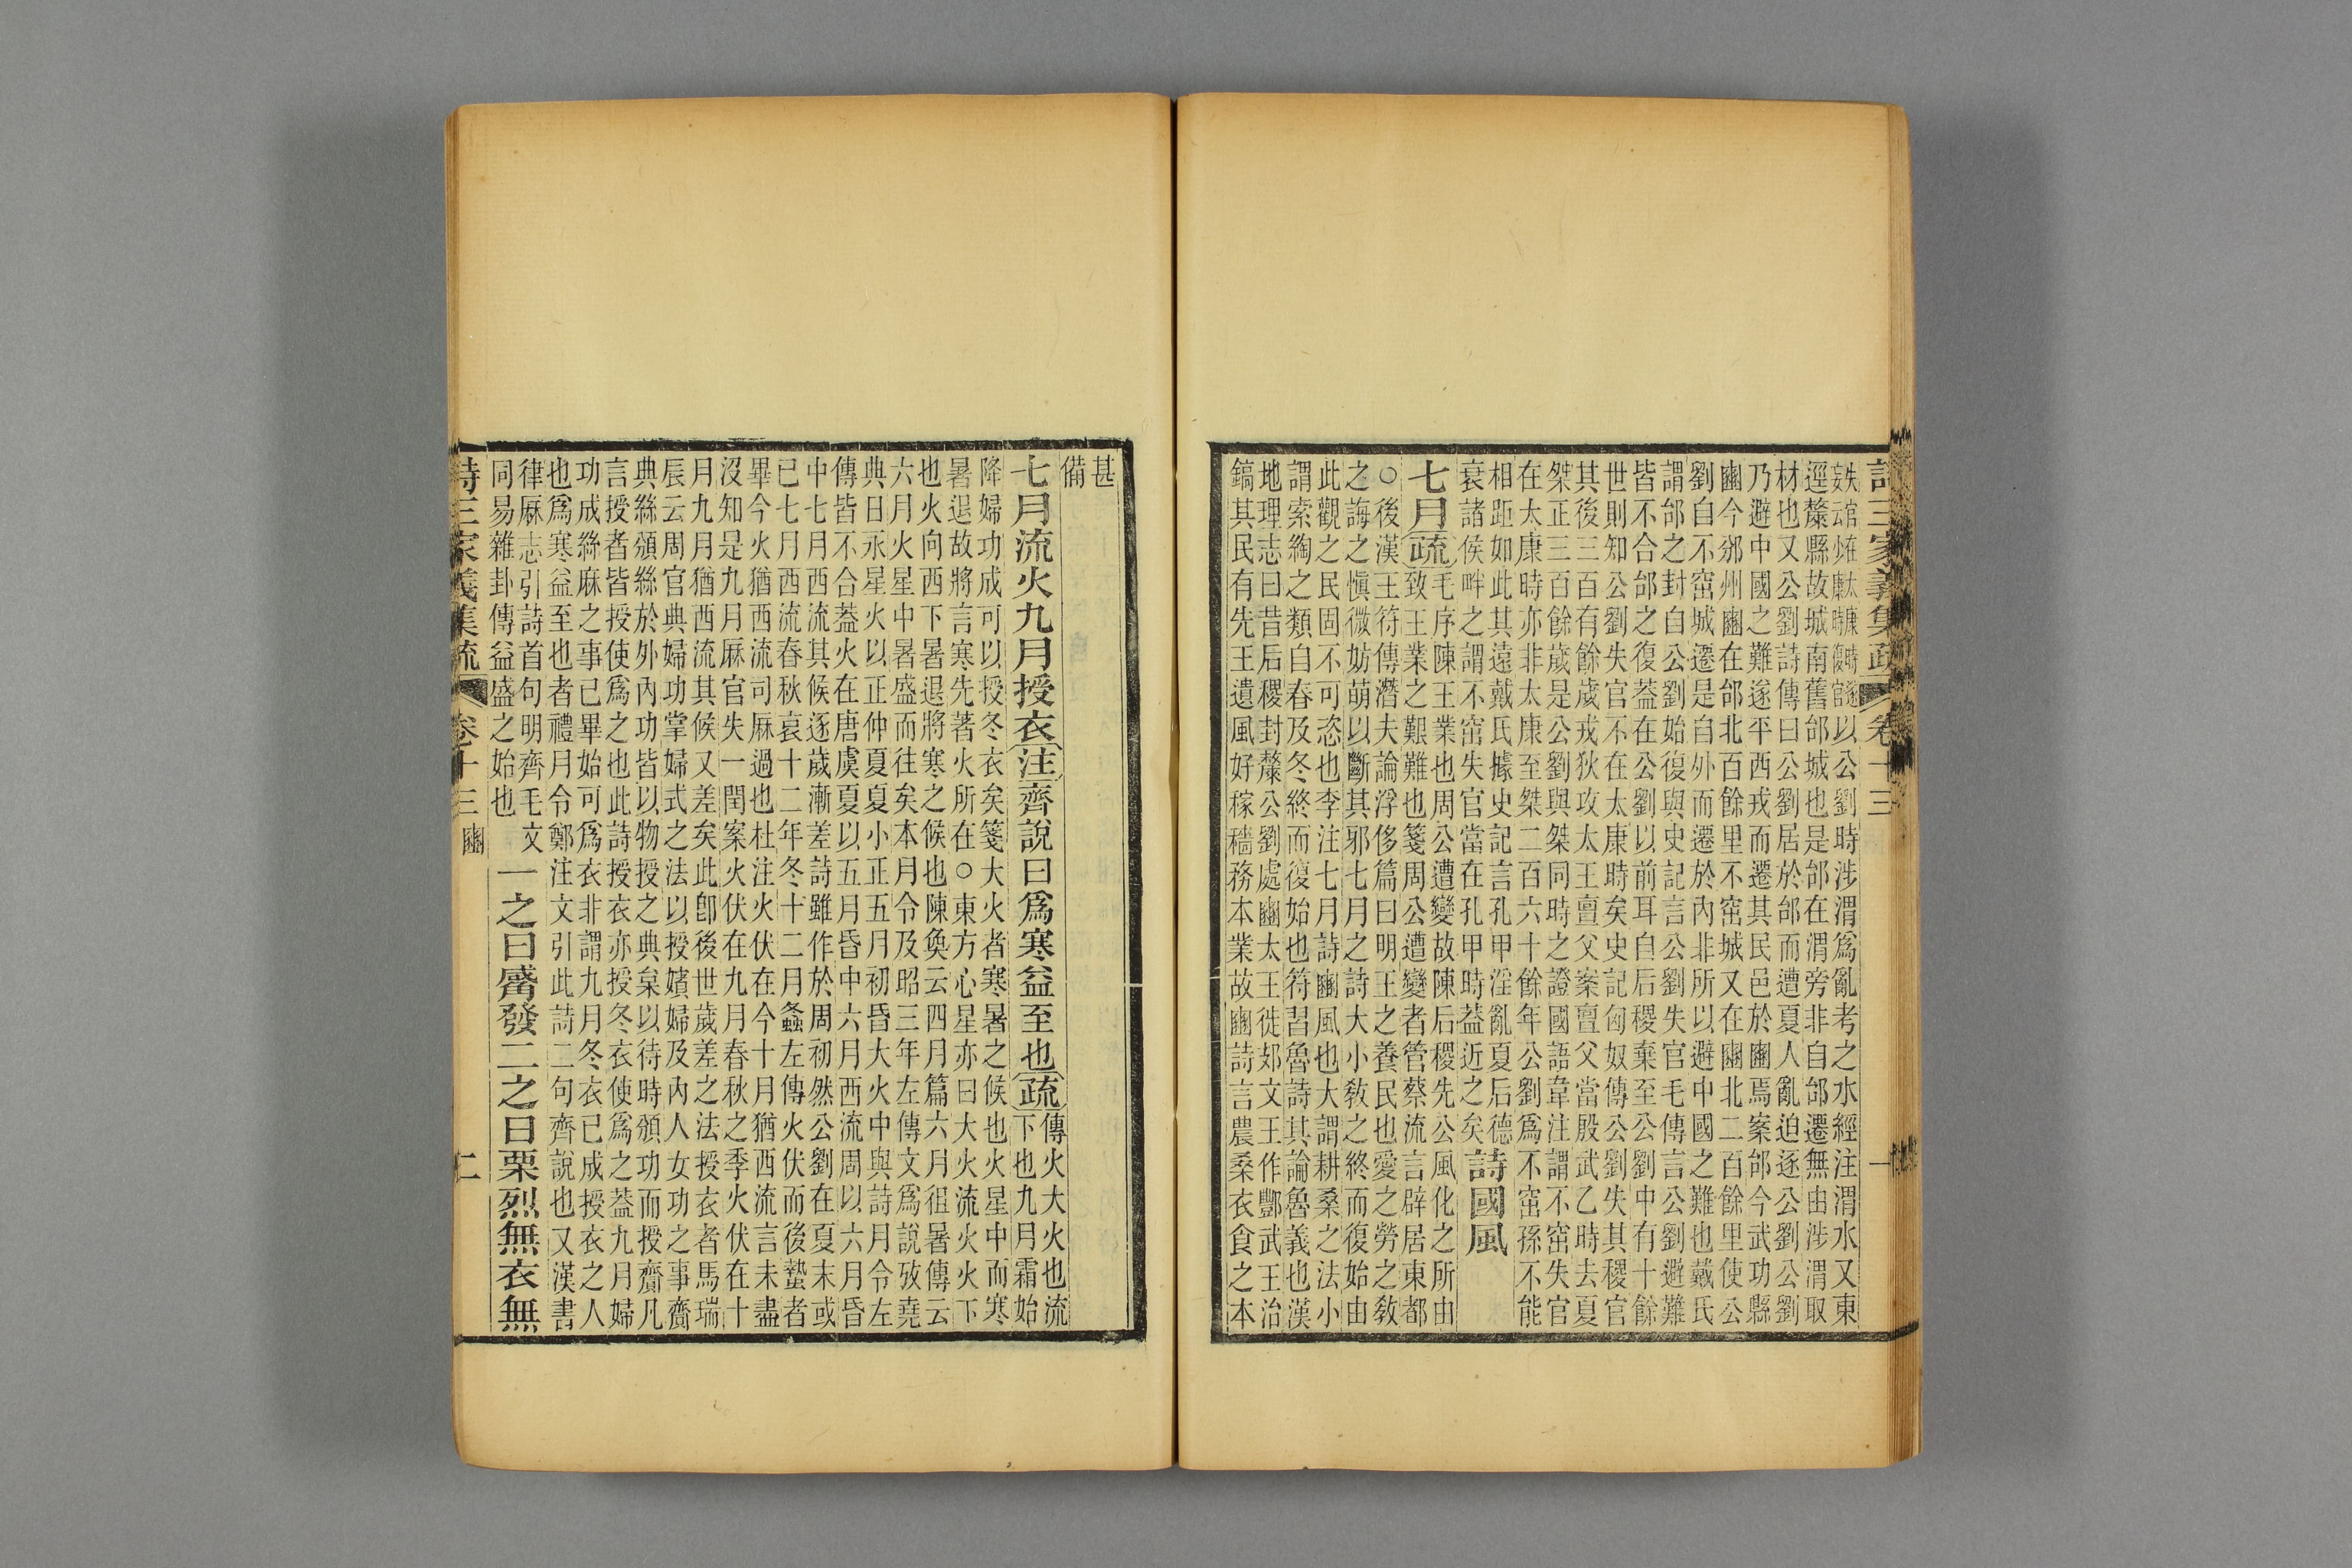 詩三家義集疏 卷十三 一
以公劉時涉渭爲亂考之水經注渭水又東
逕斄縣故城南舊邰城也是邰在渭旁非自邰遷無由涉渭取
材也又公劉詩傳曰公劉居於邰而遭夏人亂迫逐公劉公劉
乃避中國之難遂平西戎而遷其民邑於豳焉案邰今武功縣
豳今邠州豳在邰北百餘里不窋城又在豳北二百餘里使公
劉自不窋城遷是自外而遷於內非所以避中國之難也戴氏
謂邰之封自公劉始復與史記言公劉失官毛傳言公劉避難
皆不合邰之復葢在公劉以前耳自后稷棄至公劉中有十餘
世則知公劉失官不在太康時矣史記匈奴傳公劉失其稷官
其後三百有餘歲戎狄攻太王亶父案亶父當殷武乙時去夏
桀正三百餘歲是公劉與桀同時之證國語韋注謂不窋失官
在太康時亦非太康至桀二百六十餘年公劉爲不窋孫不能
相距如此其遠戴氏據史記言孔甲淫亂夏后德
衰諸侯畔之謂不窋失官當在孔甲時葢近之矣
詩國風
七月疏
毛序陳王業也周公遭變故陳后稷先公風化之所由
致王業之艱難也箋周公遭變者管蔡流言辟居東都
○後漢王符傳潛夫論浮侈篇曰明王之養民也愛之勞之敎
之誨之愼微妨萌以斷其邪七月之詩大小敎之終而復始由
此觀之民固不可恣也李注七月詩豳風也大謂耕桑之法小
謂索綯之類自春及冬終而復始也符習魯詩其論魯義也漢
地理志曰昔后稷封斄公劉處豳太王徙郊文王作酆武王治
鎬其民有先王遺風好稼穡務本業故豳詩言農桑衣食之本
甚
備
七月流火九月授衣注齊說曰爲寒益至也疏
傳火大火也流
下也九月霜始
降婦功成可以授冬衣矣箋大火者寒暑之候也火星中而寒
暑退故將言寒先著火所在○東方心星亦曰大火流火火下
也火向西下暑退將寒之候也陳奐云四月篇六月徂暑傳云
六月火星中暑盛而往矣本月令及昭三年左傳文爲說攷堯
典日永星火以正仲夏夏小正五月初昏大火中與詩月令左
傳皆不合葢火在唐虞夏以五月昏中六月西流周以六月昏
中七月西流其候逐歲漸差詩雖作於周初然公劉在夏末或
已七月西流春秋哀十二年冬十二月螽左傳火伏而後蟄者
畢今火猶西流司厤過也杜注火伏在今十月猶西流言未盡
沒知是九月厤官失一閏案火伏在九月春秋之季火伏在十
月九月猶西流其候又差矣此卽後世歲差之法授衣者馬瑞
辰云周官典婦功掌婦式之法以授嬪婦及內人女功之事齎
典絲頒絲於外內功皆以物授之典枲以待時頒功而授齎凡
言授者皆授使爲之也此詩授衣亦授冬衣使爲之葢九月婦
功成絲麻之事已畢始可爲衣非謂九月冬衣已成授衣之人
也爲寒益至也者禮月令鄭注文引此詩二句齊說也又漢書
律厤志引詩首句明齊毛文
同易雜卦傳益盛之始也
一之日觱發二之日栗烈無衣無
詩三家義集疏 卷十三 豳 二